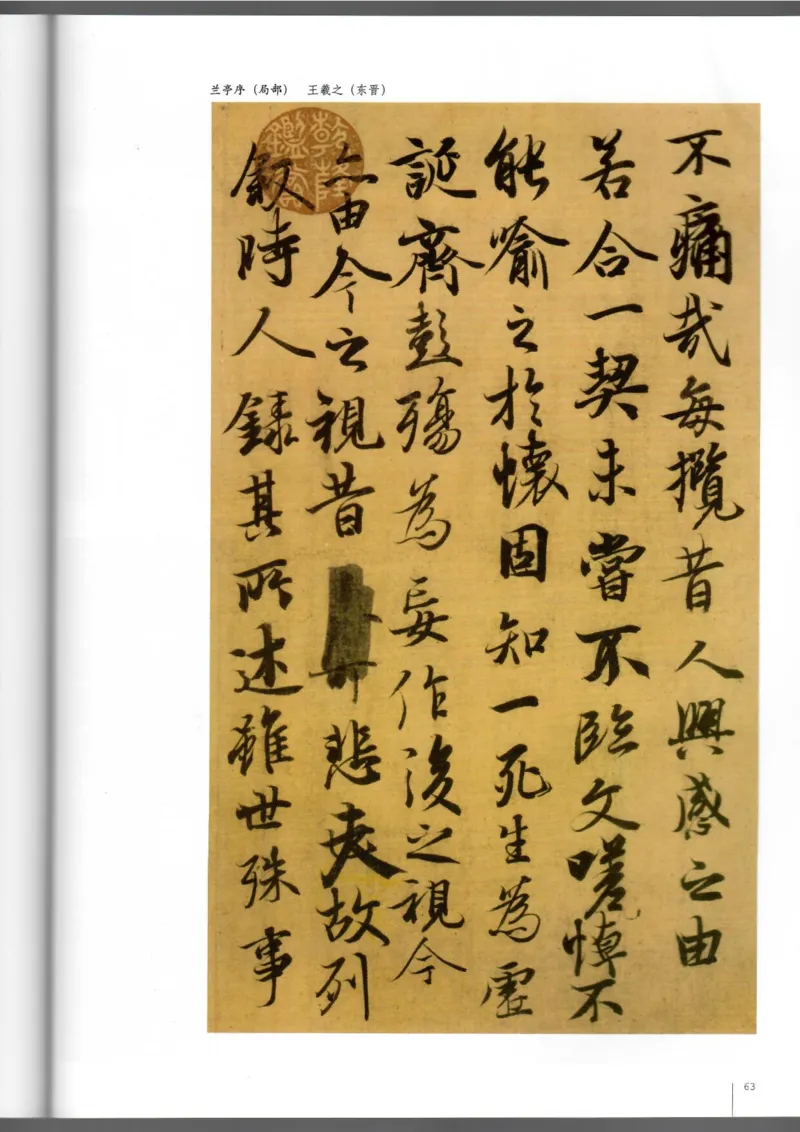 兰亭序（局部） 王羲之（东晋）
不痛哉每攬昔人興感之由
若合一契未嘗不臨文嗟悼不
能喻之於懷固知一死生為虛
誕齊彭殤為妄作後之視今
亦由今之視昔 悲夫故列
敘時人錄其所述雖世殊事
乾隆鑑賞
63